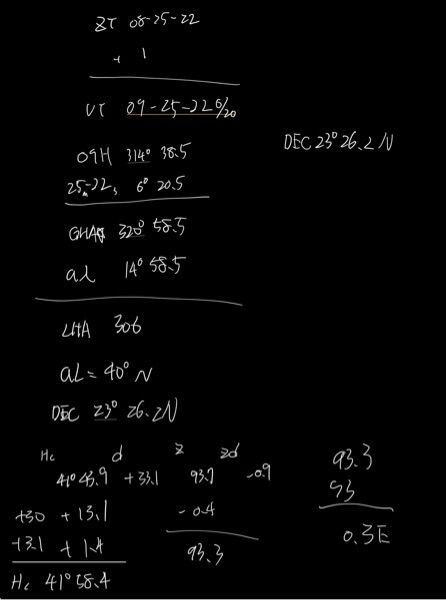 ZT 08-25-22
+ 1
UT 09-25-22 6/20
09H 314° 38.5
DEC 23° 26.2 N
25m-22s 6° 20.5
GHA 320° 58.5
aλ 14° 58.5
LHA 306
aL = 40° N
DEC 23° 26.2N
Hc d Z Zd
41° 43.9 +33.1 93.7 -0.9
+30 +13.1 -0.4
+3.1 +1.4 93.3
Hc 41° 58.4
93.3
93
0.3E